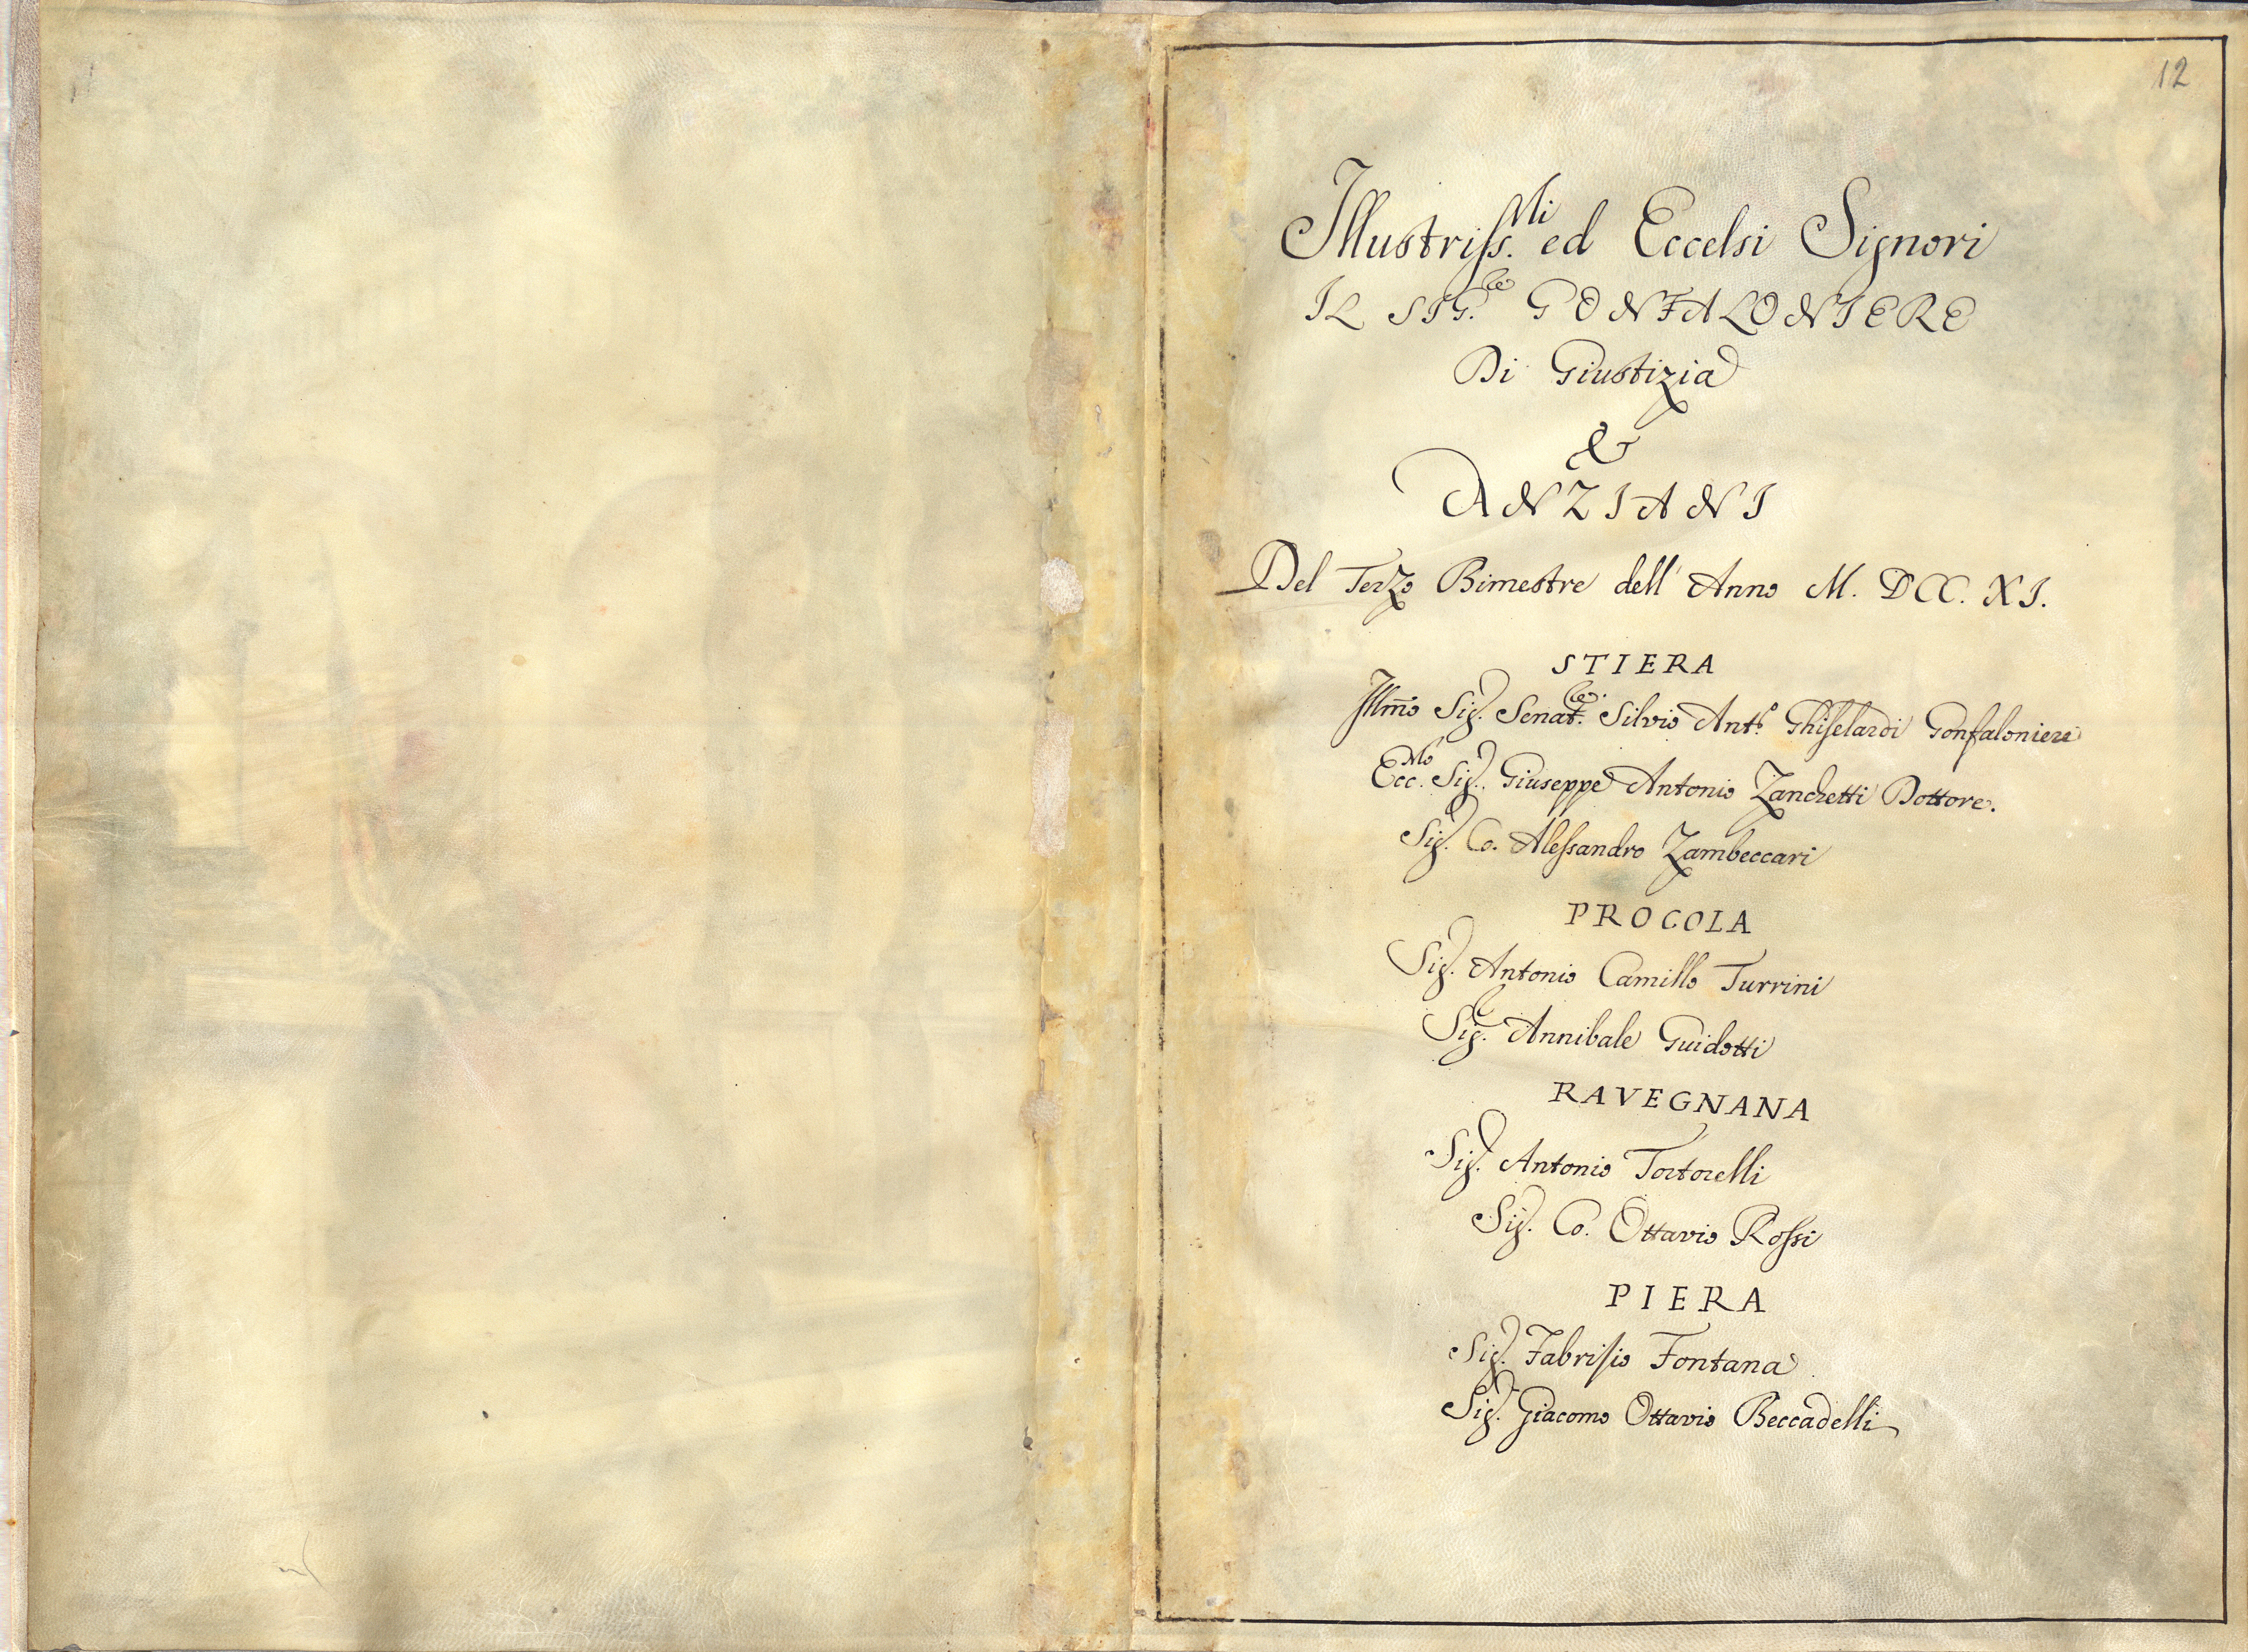 12
Illustriss.mi ed Eccelsi Signori
IL SIG.re GONFALONIERE
Di Giustizia
&
ANZIANI
Del Terzo Bimestre dell' Anno M. DCC. XI.
STIERA
Illmo Sig. Senat.re Silvio Ant.o Ghiselardi Gonfaloniere
Ecc.mo Sig. Giuseppe Antonio Zanchetti Dottore.
Sig. Co. Alessandro Zambeccari
PROCOLA
Sig. Antonio Camillo Turrini
Sig. Annibale Guidotti
RAVEGNANA
Sig. Antonio Tortorelli
Sig. Co. Ottavio Rossi
PIERA
Sig. Fabrisio Fontana
Sig. Giacomo Ottavio Beccadelli